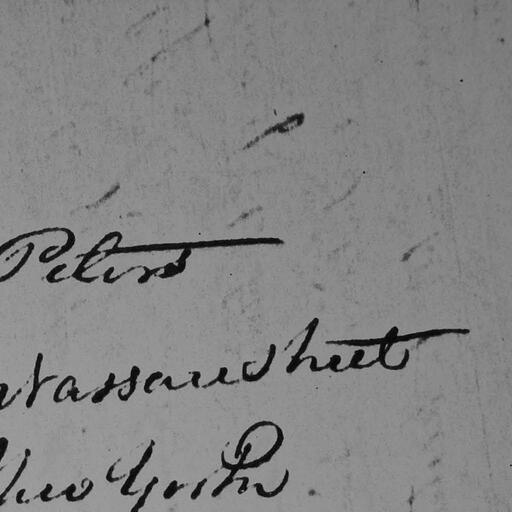 Peters
Nassau Street
New York